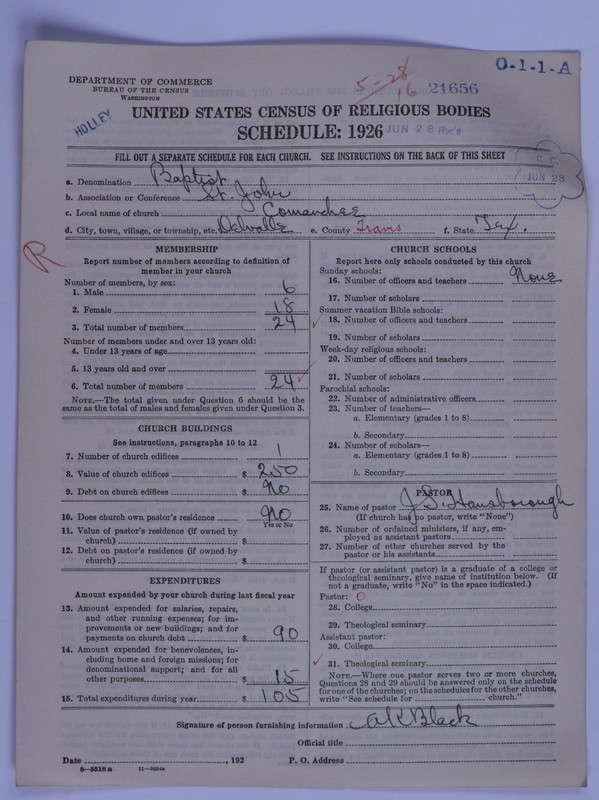 O-1-1-A
5-28
16
21656
DEPARTMENT OF COMMERCE
BUREAU OF THE CENSUS
WASHINGTON
HOLLEY
UNITED STATES CENSUS OF RELIGIOUS BODIES
SCHEDULE: 1926
JUN 28 Rec'd
FILL OUT A SEPARATE SCHEDULE FOR EACH CHURCH. SEE INSTRUCTIONS ON THE BACK OF THIS SHEET
C. C.
JUN 28
a. Denomination Baptist
b. Association or Conference St. John
c. Local name of church Comanchee
d. City, town, village, or township, etc. Delvalle e. County Travis f. State Tex.
R
MEMBERSHIP
Report number of members according to definition of
member in your church
Number of members, by sex:
1. Male 6
2. Female 18
3. Total number of members 24
Number of members under and over 13 years old:
4. Under 13 years of age
5. 13 years old and over
6. Total number of members 24
NOTE.—The total given under Question 6 should be
same as the total of males and females given under Question 3.
CHURCH BUILDINGS
See instructions, paragraphs 10 to 12
7. Number of church edifices 1
8. Value of church edifices $ 250
9. Debt on church edifices $ No
10. Does church own pastor's residence No
Yes or No
11. Value of pastor's residence (if owned by
church) $
12. Debt on pastor's residence (if owned by
church) $
EXPENDITURES
Amount expended by your church during last fiscal year
13. Amount expended for salaries, repairs,
and other running expenses; for im-
provements or new buildings; and for
payments on church debt $ 90
14. Amount expended for benevolences, in-
cluding home and foreign missions; for
denominational support; and for all
other purposes $ 15
15. Total expenditures during year $ 105
CHURCH SCHOOLS
Report here only schools conducted by this church
Sunday schools:
16. Number of officers and teachers None
17. Number of scholars
Summer vacation Bible schools:
18. Number of officers and teachers
19. Number of scholars
Week-day religious schools:
20. Number of officers and teachers
21. Number of scholars
Parochial schools:
22. Number of administrative officers
23. Number of teachers—
a. Elementary (grades 1 to 8)
b. Secondary
24. Number of scholars—
a. Elementary (grades 1 to 8)
b. Secondary
PASTOR
25. Name of pastor J. S. Hansborough
(If church has no pastor, write "None")
26. Number of ordained ministers, if any, em-
ployed as assistant pastors
27. Number of other churches served by the
pastor or his assistants
If pastor (or assistant pastor) is a graduate of a college or
theological seminary, give name of institution below. (If
not a graduate, write "No" in the space indicated.)
Pastor: O
28. College
29. Theological seminary
Assistant pastor:
30. College
31. Theological seminary
NOTE.—Where one pastor serves two or more churches,
Questions 28 and 29 should be answered only on the schedule
for one of the churches; on the schedules for the other churches,
write "See schedule for church."
Signature of person furnishing information Black
Official title
Date , 192 P. O. Address
6—5518 a